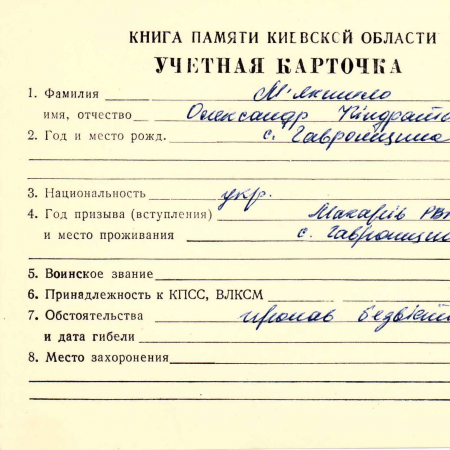 КНИГА ПАМЯТИ КИЕВСКОЙ ОБЛАСТИ
УЧЕТНАЯ КАРТОЧКА
1. Фамилия М'якшило
имя, отчество Олександр Кіндрато
2. Год и место рожд. с. Гавронщина
3. Национальность укр.
4. Год призыва (вступления) Макарів РВК
и место проживания с. Гавронщин
5. Воинское звание
6. Принадлежность к КПСС, ВЛКСМ
7. Обстоятельства пропав безвіст
и дата гибели
8. Место захоронения